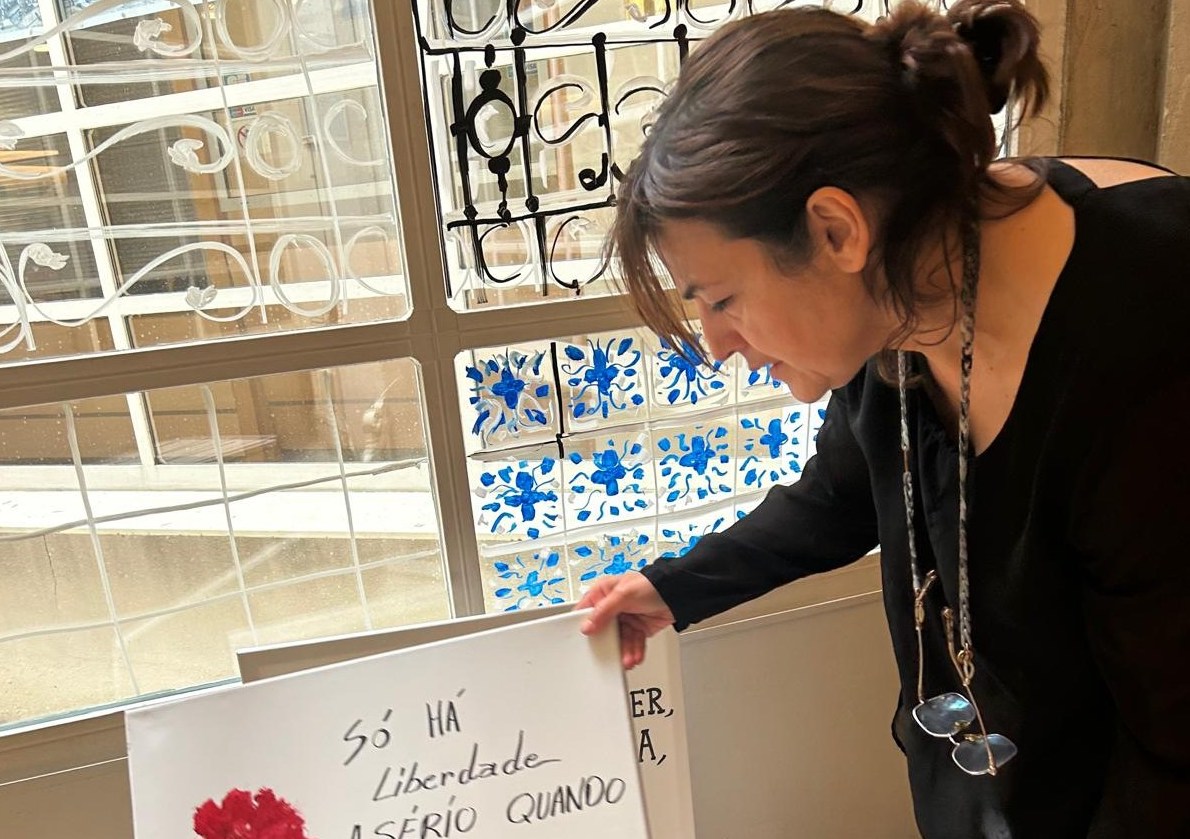 SÓ HÁ
Liberdade
A SÉRIO QUANDO
ER,
A,